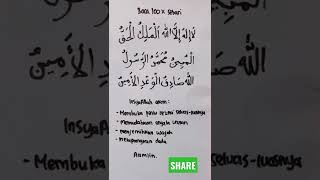 Baca 100x sehari
لَا إِلٰهَ إِلَّا اللّٰهُ الْمَلِكُ الْحَقُّ
الْمُبِيْنُ مُحَمَّدٌ الرَّسُوْلُ
اللّٰهِ صَادِقُ الْوَعْدِ الْأَمِيْنُ
InsyaAllah akan:
- Membuka pintu rezeki seluas-luasnya
- Memudahkan segala urusan
- menjernihkan wajah
- melapangkan dada
Aamiin.
SHARE